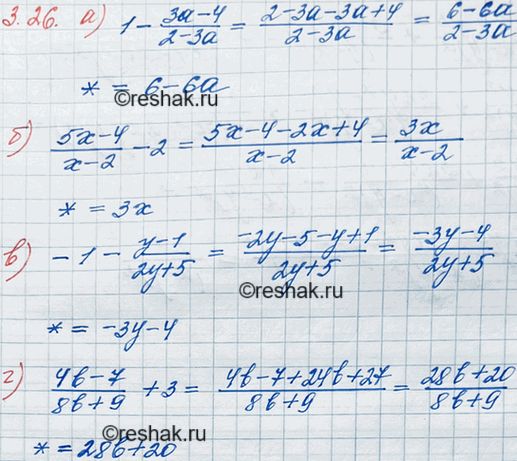 3.26. а) 1 - (3a-4)/(2-3a) = (2-3a-3a+4)/(2-3a) = (6-6a)/(2-3a)
* = 6-6a
©reshak.ru
б) (5x-4)/(x-2) - 2 = (5x-4-2x+4)/(x-2) = 3x/(x-2)
* = 3x
©reshak.ru
в) -1 - (y-1)/(2y+5) = (-2y-5-y+1)/(2y+5) = (-3y-4)/(2y+5)
©reshak.ru
* = -3y-4
г) (4b-7)/(8b+9) + 3 = (4b-7+24b+27)/(8b+9) = (28b+20)/(8b+9)
©reshak.ru
* = 28b+20